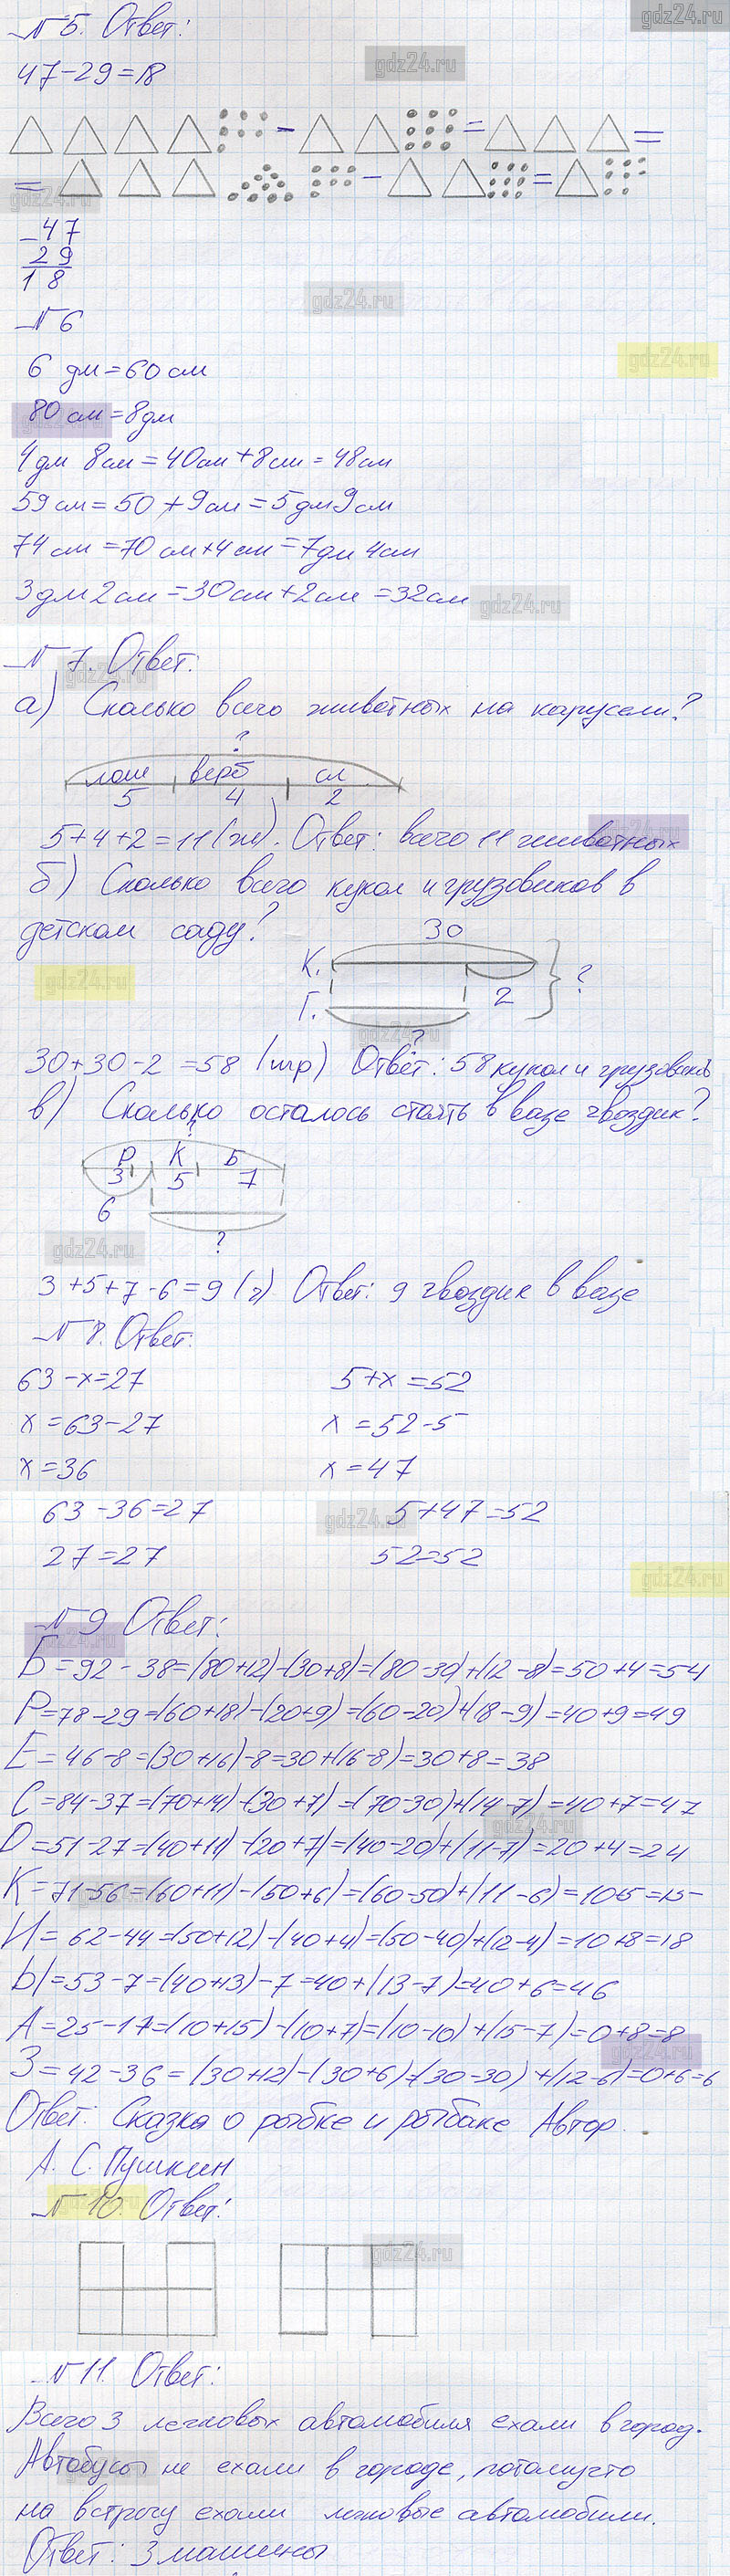 gdz24.ru
№5. Ответ:
gdz24.ru
47-29=18
- = =
= - =
gdz24.ru
-47
29
18
gdz24.ru
№6
gdz24.ru
6 дм=60см
80см=8дм
4дм 8см=40см+8см=48см
59см=50+9см=5дм9см
74см=70см+4см=7дм4см
3дм2см=30см+2см=32см
gdz24.ru
№7. Ответ:
а) Сколько всего животных на карусели?
?
лош верб сл
5 4 2
5+4+2=11(ж). Ответ: всего 11 животных
б) Сколько всего кукол и грузовиков в
детском саду?
30
К.
2 ?
Г.
?
gdz24.ru
gdz24.ru
30+30-2=58 (игр) Ответ: 58 кукол и грузовиков
в) Сколько осталось стоять в вазе гвоздик?
?
Р К Б
3 5 7
6
?
gdz24.ru
3+5+7-6=9(г) Ответ: 9 гвоздик в вазе
№8. Ответ:
63-x=27 5+x=52
x=63-27 x=52-5
x=36 x=47
63-36=27 5+47=52
gdz24.ru
27=27 52=52
gdz24.ru
№9 Ответ:
gdz24.ru
Б=92-38=(80+12)-(30+8)=(80-30)+(12-8)=50+4=54
Р=78-29=(60+18)-(20+9)=(60-20)+(18-9)=40+9=49
Е=46-8=(30+16)-8=30+(16-8)=30+8=38
С=84-37=(70+14)-(30+7)=(70-30)+(14-7)=40+7=47
gdz24.ru
О=51-27=(40+11)-(20+7)=(40-20)+(11-7)=20+4=24
К=71-56=(60+11)-(50+6)=(60-50)+(11-6)=10+5=15
И=62-44=(50+12)-(40+4)=(50-40)+(12-4)=10+8=18
Ы=53-7=(40+13)-7=40+(13-7)=40+6=46
А=25-17=(10+15)-(10+7)=(10-10)+(15-7)=0+8=8
gdz24.ru
З=42-36=(30+12)-(30+6)=(30-30)+(12-6)=0+6=6
Ответ: Сказка о рыбке и рыбаке Автор.
А. С. Пушкин
№10. Ответ:
gdz24.ru
№11. Ответ:
Всего 3 легковых автомобиля ехали в город.
Автобусы не ехали в городе, потомучто
на встречу ехали легковые автомобили.
Ответ: 3 машины